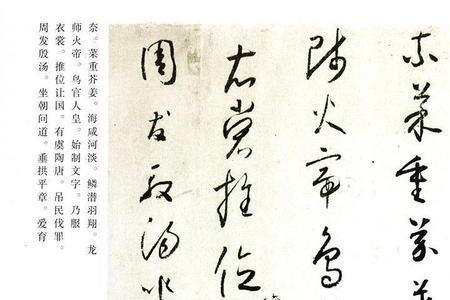 柰菜重芥姜
师火帝鸟
衣裳推位
周发殷汤坐
柰。菜重芥姜。海咸河淡。鳞潜羽翔。龙
师火帝。鸟官人皇。始制文字。乃服
衣裳。推位让国。有虞陶唐。吊民伐罪。
周发殷汤。坐朝问道。垂拱平章。爱育